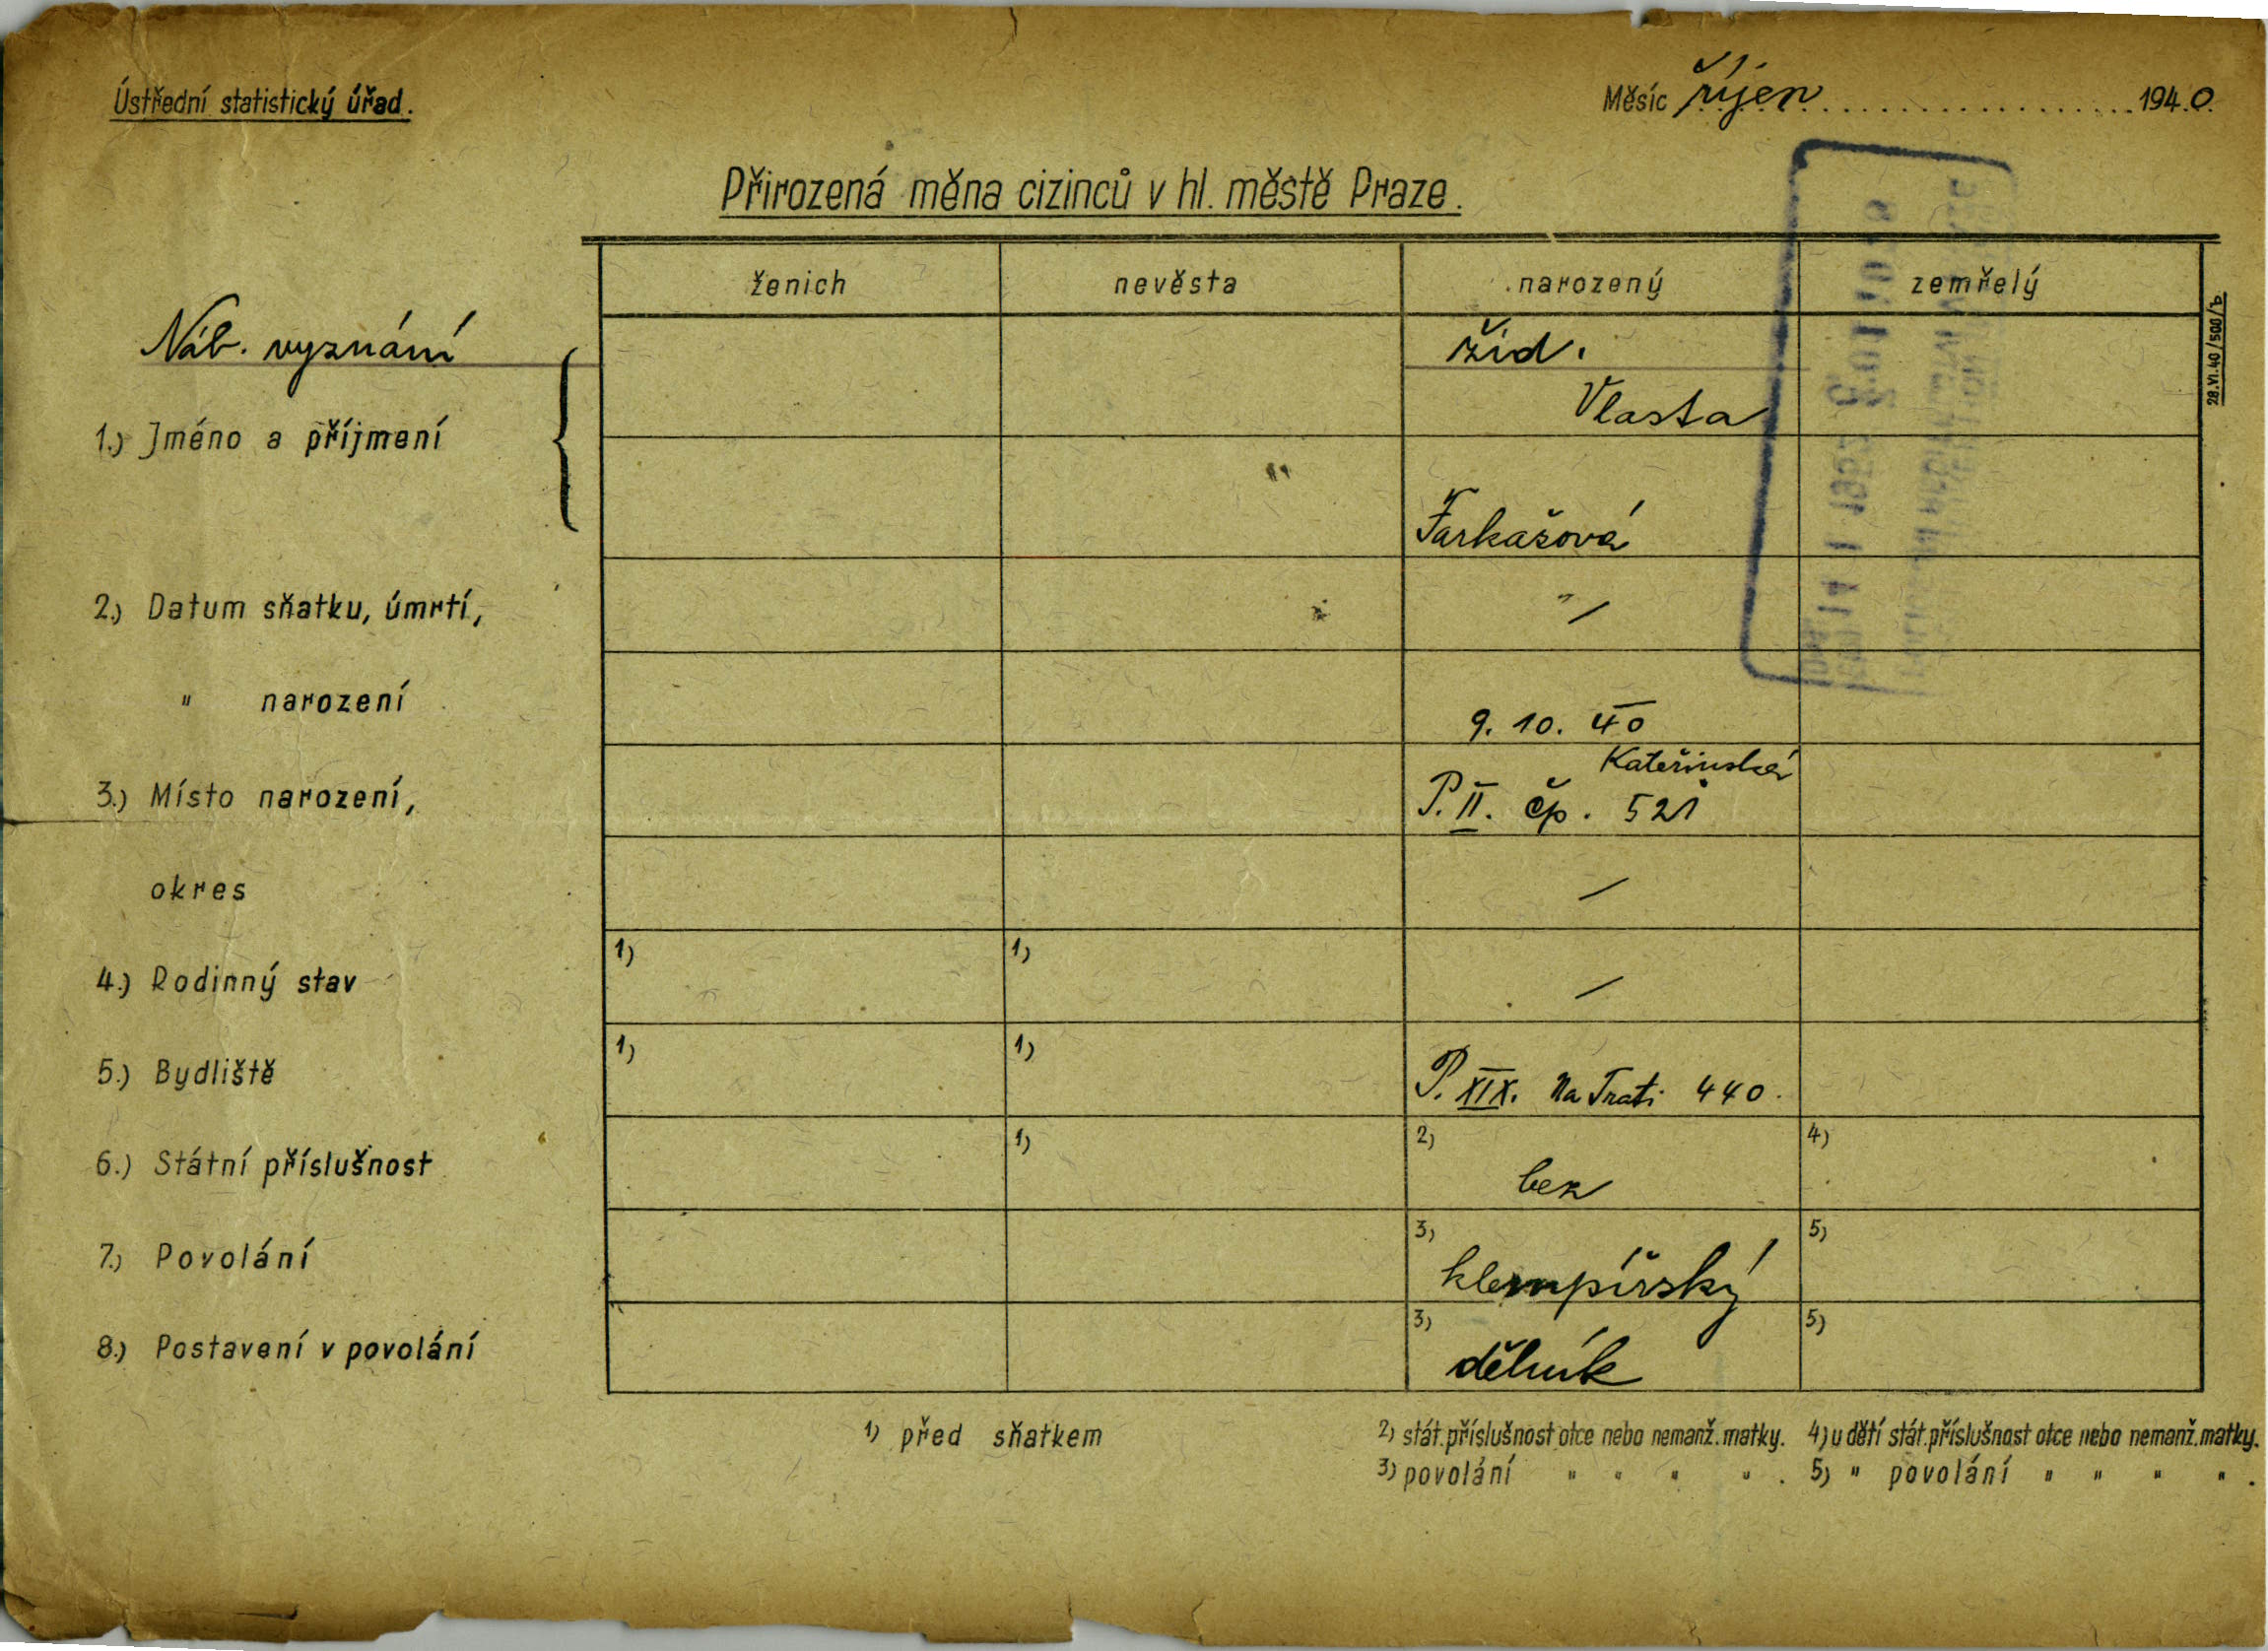 Ústřední statistický úřad.
Měsíc říjen 1940.
Přirozená měna cizinců v hl. městě Praze.
ženich nevěsta narozený zemřelý
28.VI.40/500/b
Náb. vyznání žid.
Vlasta
1.) Jméno a příjmení
Farkašová
2.) Datum sňatku, úmrtí, " /
" narození 9. 10. 40
Kateřinská
3.) Místo narození, P. II. čp. 521
okres /
4.) Rodinný stav 1) 1) /
5.) Bydliště 1) 1) P. XIX. Na Trati 440.
6.) Státní příslušnost 1) 2) bez 4)
7.) Povolání 3) klempířský 5)
8.) Postavení v povolání 3) dělník 5)
1) před sňatkem
2) stát.příslušnost otce nebo nemanž.matky. 4) u dětí stát.příslušnost otce nebo nemanž.matky.
3) povolání " " " " . 5) " povolání " " " " .